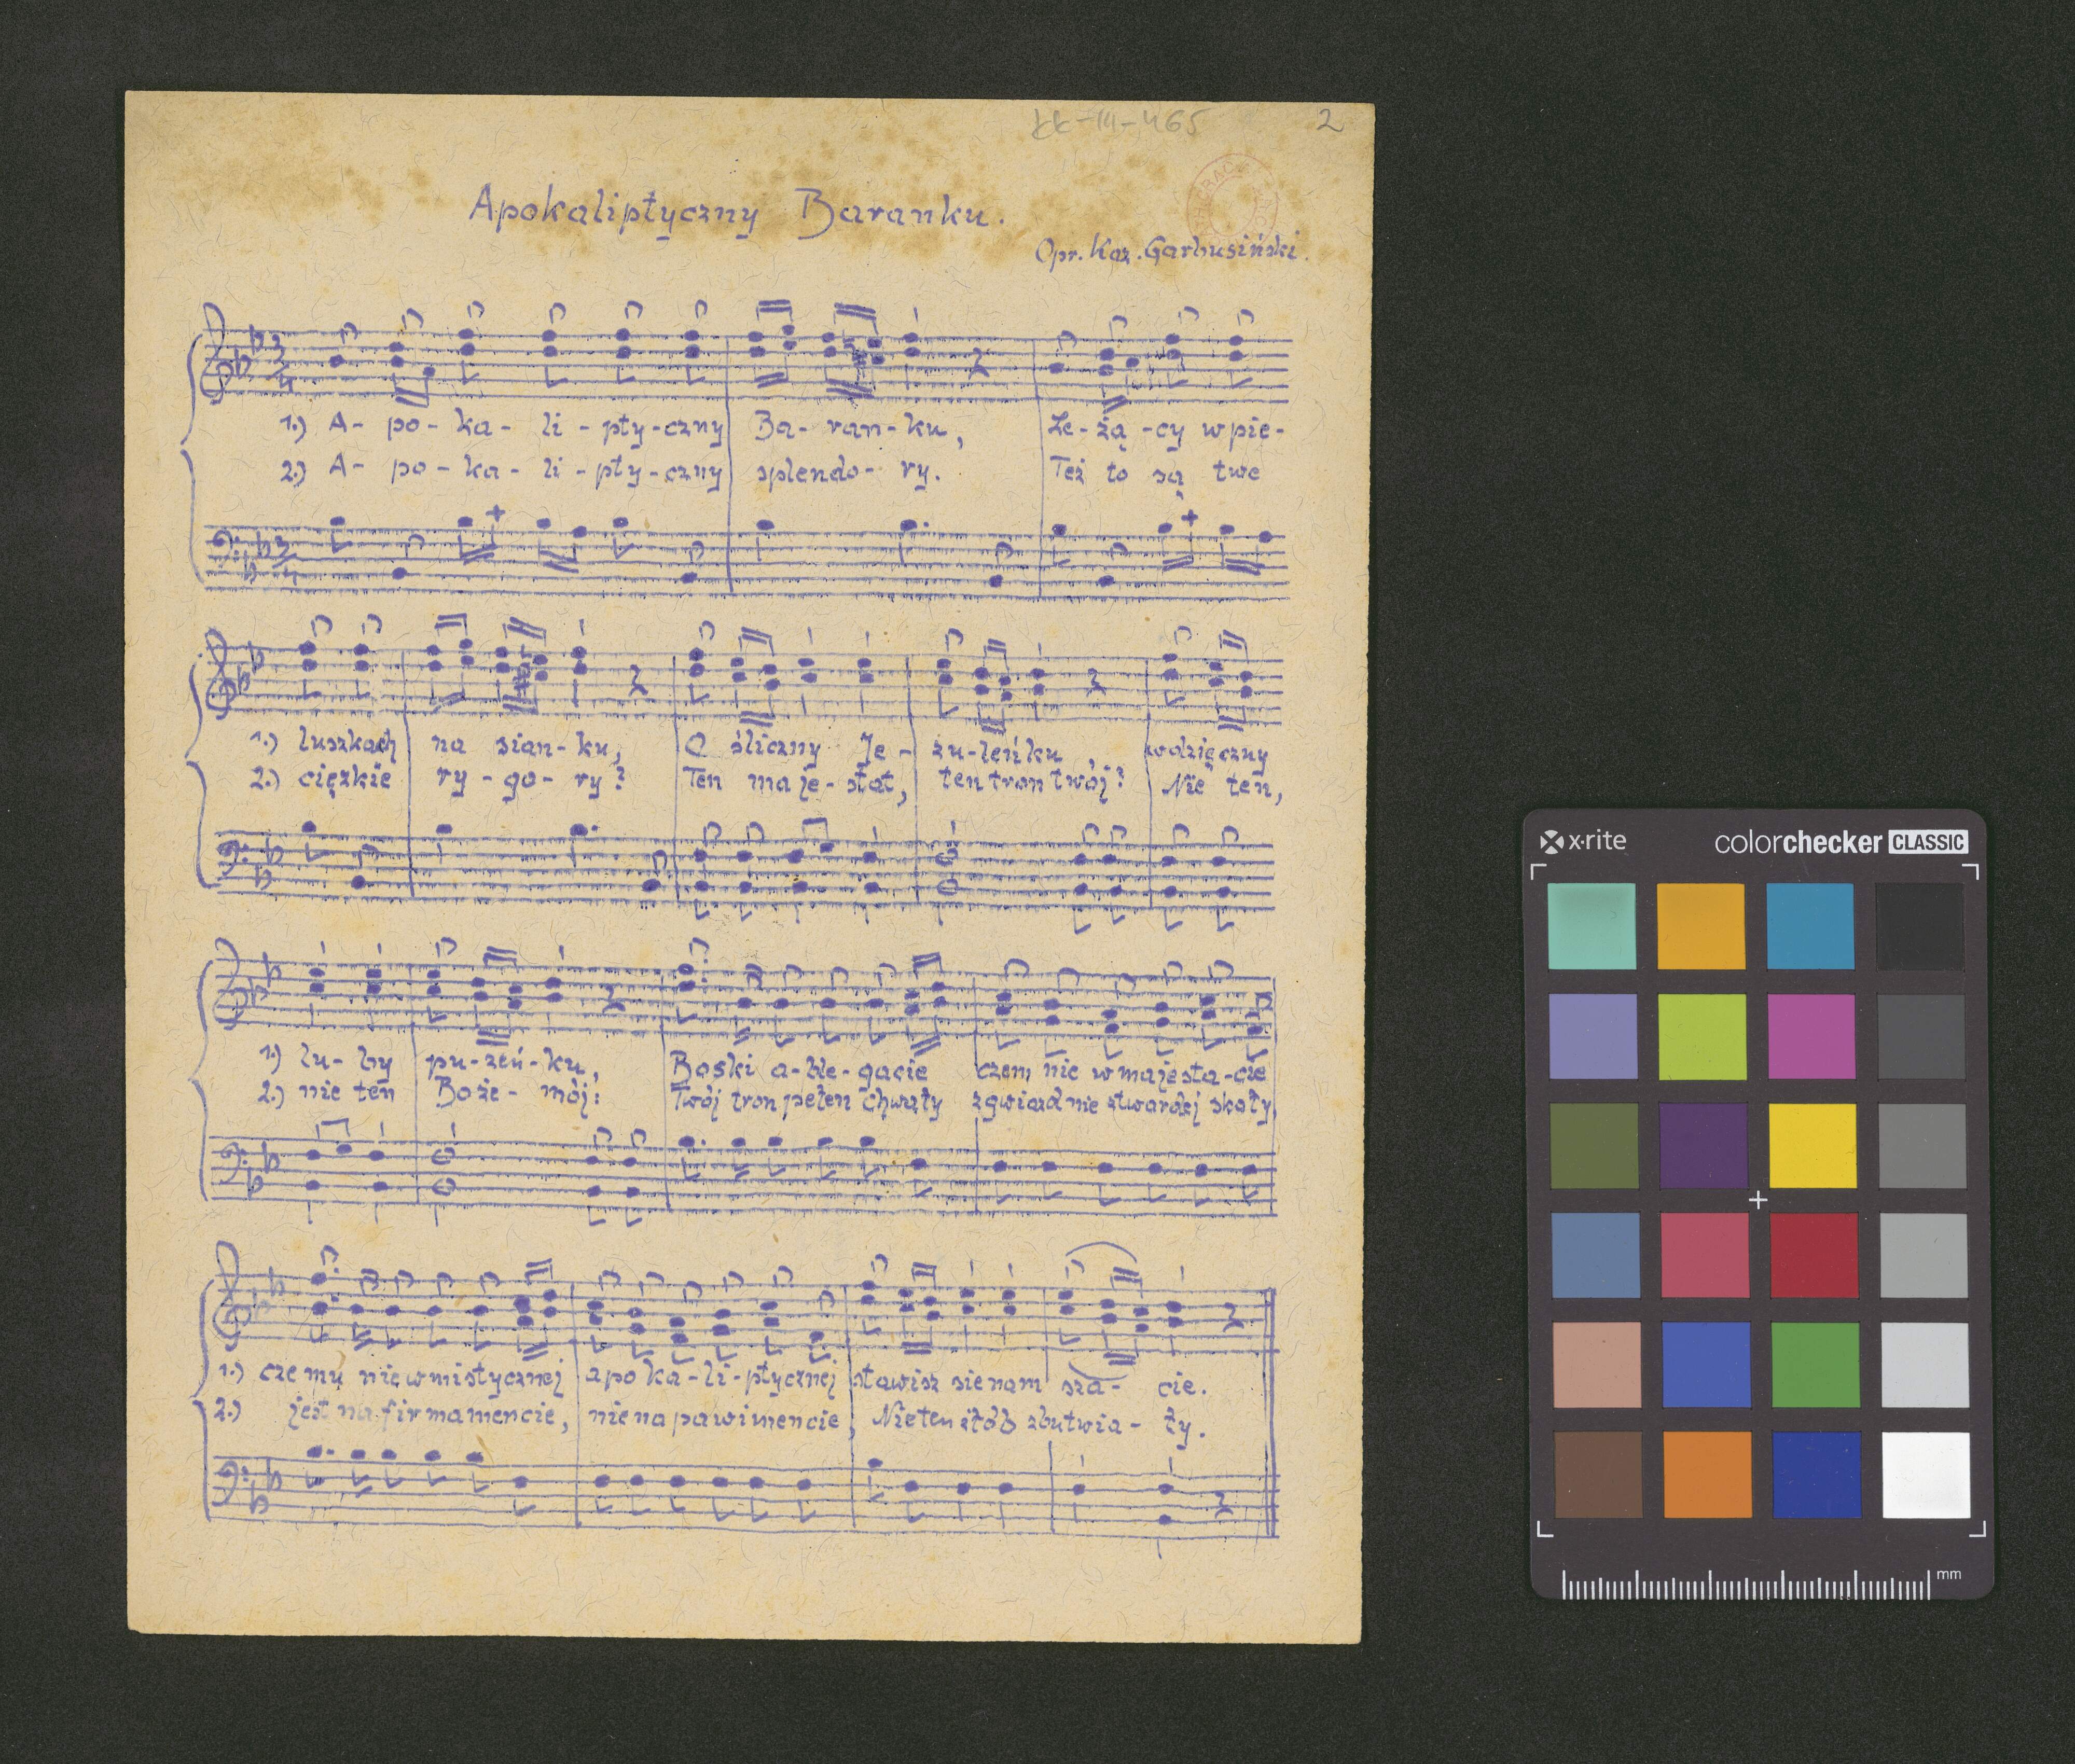 kk-III-465 2
Apokaliptyczny Baranku.
Opr. Kaz. Garbusiński.
1.) A- po- ka- li- pty-czny Ba- ran-ku, Le-żą-cy w pie-
2.) A- po- ka- li- pty- czny splendo- ry. Też to są twe
1.) luszkach na sian-ku, O śliczny Je- zu-leńku wdzięczny
2.) ciężkie ry- go- ry? Ten maje- stat, ten tron twój? Nie ten,
1.) lu- by pu-zeń-ku, Boski a-ble-gacie czem nie w majesta-cie
2.) nie ten Boże- mój: Twój tron pełen chwały z gwiazd nie z twardej skały,
1.) czemu nie w mistycznej apoka-li-ptycznej stawisz sie nam sza- cie.
2.) jest na firmamencie, nie na pawimencie, Nie ten żłób zbutwia- ły.
x-rite colorchecker CLASSIC
mm